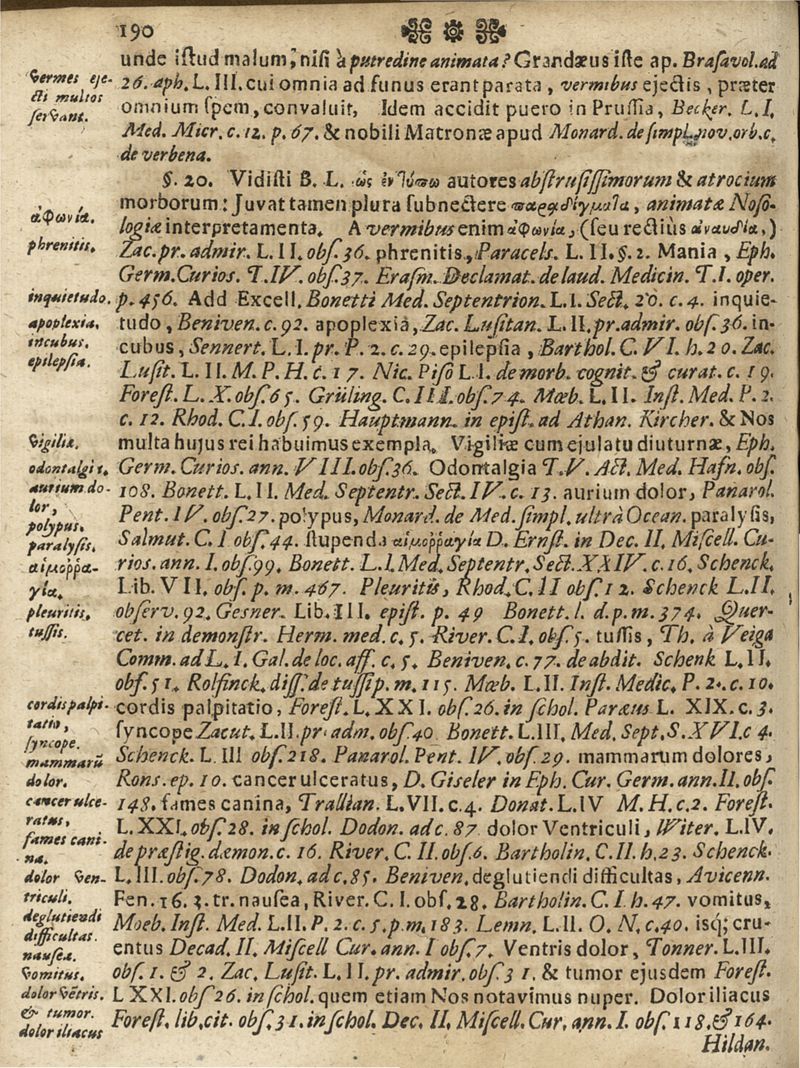 190
unde iſtud malum, niſi à putredine animata? Grandæus iſte ap. Braſavol. ad
Vermes eje-
cti multos
ſervant.
26. aph. L. III. cui omnia ad funus erant parata, vermibus ejectis, præter
omnium ſpem, convaluit, Idem accidit puero in Pruſſia, Becker. L. I.
Med. Micr. c. 12. p. 67. & nobili Matronæ apud Monard. de ſimpl. nov. orb. c.
de verbena.
§. 20. Vidiſti B. L. ὡς ἐν τύπῳ autores abſtruſiſſimorum & atrocium
morborum: Juvat tamen plura ſubnectere παραδείγματα, animatæ Noſo-
ἀφωνία.
logiæ interpretamenta. A vermibus enim ἀφωνία, (ſeu rectiùs ἀναυδία,)
phrenitis.
Zac. pr. admir. L. II. obſ. 36. phrenitis, Paracelſ. L. II. §. 2. Mania, Eph.
Germ. Curioſ. T. IV. obſ. 37. Eraſm. Declamat. de laud. Medicin. T. I. oper.
inquietudo.
p. 456. Add Excell. Bonetti Med. Septentrion. L. I. Sect. 20. c. 4. inquie-
apoplexia.
tudo, Beniven. c. 92. apoplexiâ, Zac. Luſitan. L. II. pr. admir. obſ. 36. in-
incubus.
epilepſia.
cubus, Sennert. L. I. pr. P. 2. c. 29. epilepſia, Barthol. C. VI. h. 20. Zac.
Luſit. L. II. M. P. H. c. 17. Nic. Piſo L. I. de morb. cognit. & curat. c. 19.
Foreſt. L. X. obſ. 65. Grüling. C. III. obſ. 74. Mœb. L. II. Inſt. Med. P. 2.
c. 12. Rhod. C. I. obſ. 59. Hauptmann. in epiſt. ad Athan. Kircher. & Nos
Vigiliæ.
multa hujus rei habuimus exempla. Vigiliæ cum ejulatu diuturnæ, Eph.
odontalgia.
Germ. Curioſ. ann. VIII. obſ. 36. Odontalgia T. V. Act. Med. Hafn. obſ.
aurium do-
lor,
108. Bonett. L. II. Med. Septentr. Sect. IV. c. 13. aurium dolor, Panarol.
polypus.
Pent. IV. obſ. 27. polypus, Monard. de Med. ſimpl. ultrà Ocean. paralyſis,
paralyſis.
Salmut. C. I obſ. 44. ſtupenda αἱμοῤῥαγία D. Ernſt. in Dec. II. Miſcell. Cu-
αἱμοῤῥα-
γία.
rioſ. ann. I. obſ. 99. Bonett. L. I. Med. Septentr. Sect. XXIV. c. 16. Schenck.
Lib. VII. obſ. p. m. 467. Pleuritis, Rhod. C. II obſ. 12. Schenck L. II.
pleuritis.
obſerv. 92. Geſner. Lib. III. epiſt. p. 49 Bonett. l. d. p. m. 374. Quer-
tuſſis.
cet. in demonſtr. Herm. med. c. 5. River. C. I. obſ. 5. tuſſis, Th. à Veiga
Comm. ad L. I. Gal. de loc. aff. c. 5. Beniven. c. 77. de abdit. Schenk L. II.
obſ. 51. Rolfinck. diſſ. de tuſſi p. m. 115. Mœb. L. II. Inſt. Medic. P. 2. c. 10.
cordis palpi-
tatio,
cordis palpitatio, Foreſt. L. XXI. obſ. 26. in ſchol. Paræus L. XIX. c. 3.
ſyncope.
ſyncope Zacut. L. II. pr. adm. obſ. 40 Bonett. L. III. Med. Sept. S. XVI. c 4.
mammarū
dolor.
Schenck. L. III obſ. 218. Panarol. Pent. IV. obſ. 29. mammarum dolores,
Ronſ. ep. 10. cancer ulceratus, D. Giſeler in Eph. Cur. Germ. ann. II. obſ.
cancer ulce-
ratus,
148. fames canina, Trallian. L. VII. c. 4. Donat. L. IV M. H. c. 2. Foreſt.
fames cani-
na.
L. XXI. obſ. 28. in ſchol. Dodon. ad c. 87 dolor Ventriculi, Witer. L. IV.
de præſtig. dæmon. c. 16. River. C. II. obſ. 6. Bartholin. C. II. h. 23. Schenck.
dolor Ven-
triculi.
L. III. obſ. 78. Dodon. ad c. 85. Beniven. deglutiendi difficultas, Avicenn.
Fen. 16. 3. tr. nauſea, River. C. I. obſ. 28. Bartholin. C. I. h. 47. vomitus,
deglutiendi
difficultas.
Moeb. Inſt. Med. L. II. P. 2. c. 5. p. m. 183. Lemn. L. II. O. N. c. 40. isq́; cru-
nauſea.
entus Decad. II. Miſcell Cur. ann. I obſ. 7. Ventris dolor, Tonner. L. III.
Vomitus.
obſ. 1. & 2. Zac. Luſit. L. II. pr. admir. obſ. 31. & tumor ejusdem Foreſt.
dolor Vētris.
L XXI. obſ 26. in ſchol. quem etiam Nos notavimus nuper. Dolor iliacus
& tumor.
dolor iliacus
Foreſt. lib. cit. obſ. 31. in ſchol. Dec. II. Miſcell. Cur. ann. I. obſ. 118. & 164.
Hildan.